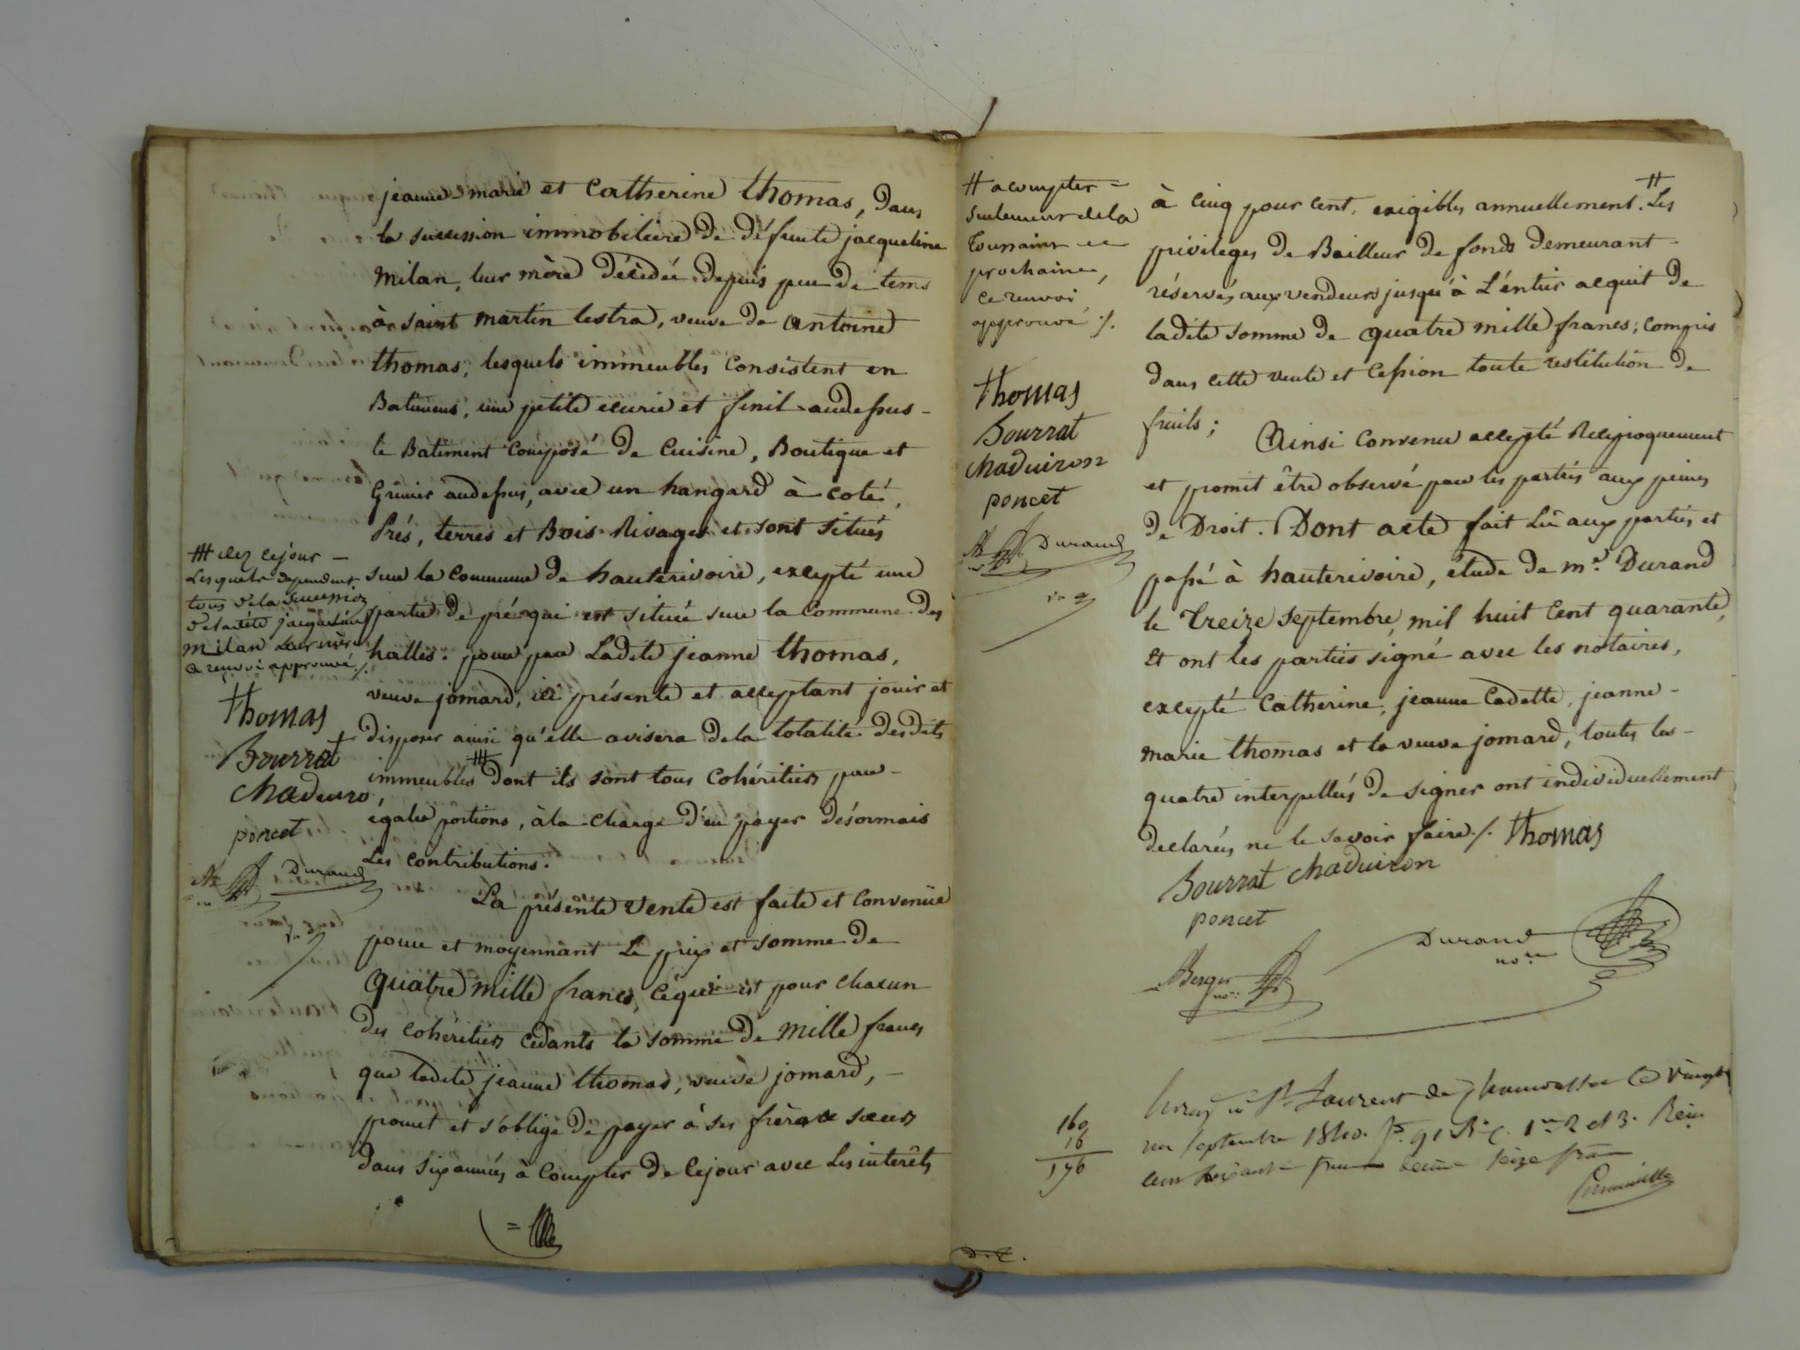 jeanne marie et Catherine thomas, dans
la succession immobiliere de défunte jacqueline
milan, leur mère décédée depuis peu de tems
à saint martin lestra, veuve de antoine
thomas, lesquels immeubles Consistent en
Batimens, une petite ecurie et fenil audessus -
le Batiment Composé de Cuisine, Boutique et
Grenier audessus, avec un hangard à coté,
Prés, terres et Bois Rivages et sont situés
sur la Commune de hauterivoire, excepté une
partie de pré qui est située sur la Commune des
halles. pour par Ladite jeanne thomas,
veuve jomard, ici présente et acceptant jouir et
disposer ainsi qu'elle avisera de la totalité desdits
immeubles # dont ils sont tous Cohéritiers par -
egales portions, à la charge d'en payer désormais
Les contributions.
La présente vente est faite et Convenüe
pour et moyennant Le prix et somme de
quatre mille francs, ce qui est pour chacun
des Cohéritiers Cédants la somme de mille francs
que ladite jeanne thomas, veuve jomard, -
promet et s'oblige de payer à ses frère et sœurs
dans six années à Compter de Cejour avec Les interêts
# dez cejour -
Lesquels dependent
tous de la succession
de ladite jacqueline
milan Leur mère
ce renvoi approuvé ./.
Thomas
Bourrat
chaduiro,
poncet
Durand
# a compter =
seulement de la
Toussaint
prochaine,
ce renvoi
approuvé ./.
Thomas
Bourrat
chaduiron
poncet
Durand
à cinq pour cent, exigibles annuellement. # Les
privileges de Bailleur de fonds demeurant -
réservés aux vendeurs jusqu'à L'éntier acquit de
ladite somme de quatre mille francs; Compris
dans cette vente et Cession toute restitution de
fruits;
Ainsi Convenu accepté Réciproquement
et promit être observé par les parties aux peines
de Droit. Dont acte fait Lû aux parties et
passé à hauterivoire, étude de me. Durand
le treize septembre, mil huit Cent quarante,
Et ont les parties signé avec les notaires,
excepté Catherine, jeanne Cadette, jeanne -
marie thomas et la veuve jomard, toutes les -
quatre interpellées de signer ont individuellement
déclarées ne le savoir faire ./. Thomas
Bourrat chaduiron
poncet
Durand
nore
Berger
nore
Enreg. à St Laurent de Chamousset le vingt
un septembre 1840. fo. 91 Ro c. 1re 2 et 3. Reçu
cent soixante francs décime seize francs
160
16
176